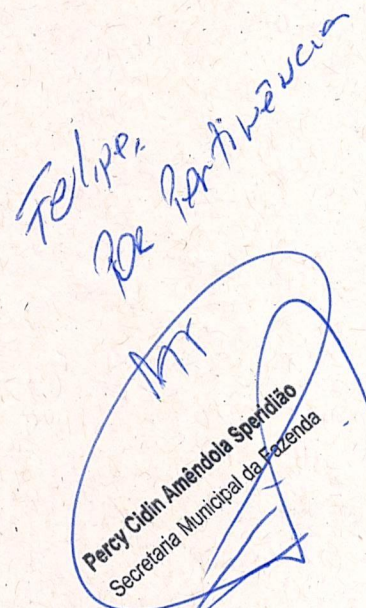 Felipe,
Por Pertinência
Att
Percy Cidin Amêndola Speridião
Secretaria Municipal da Fazenda